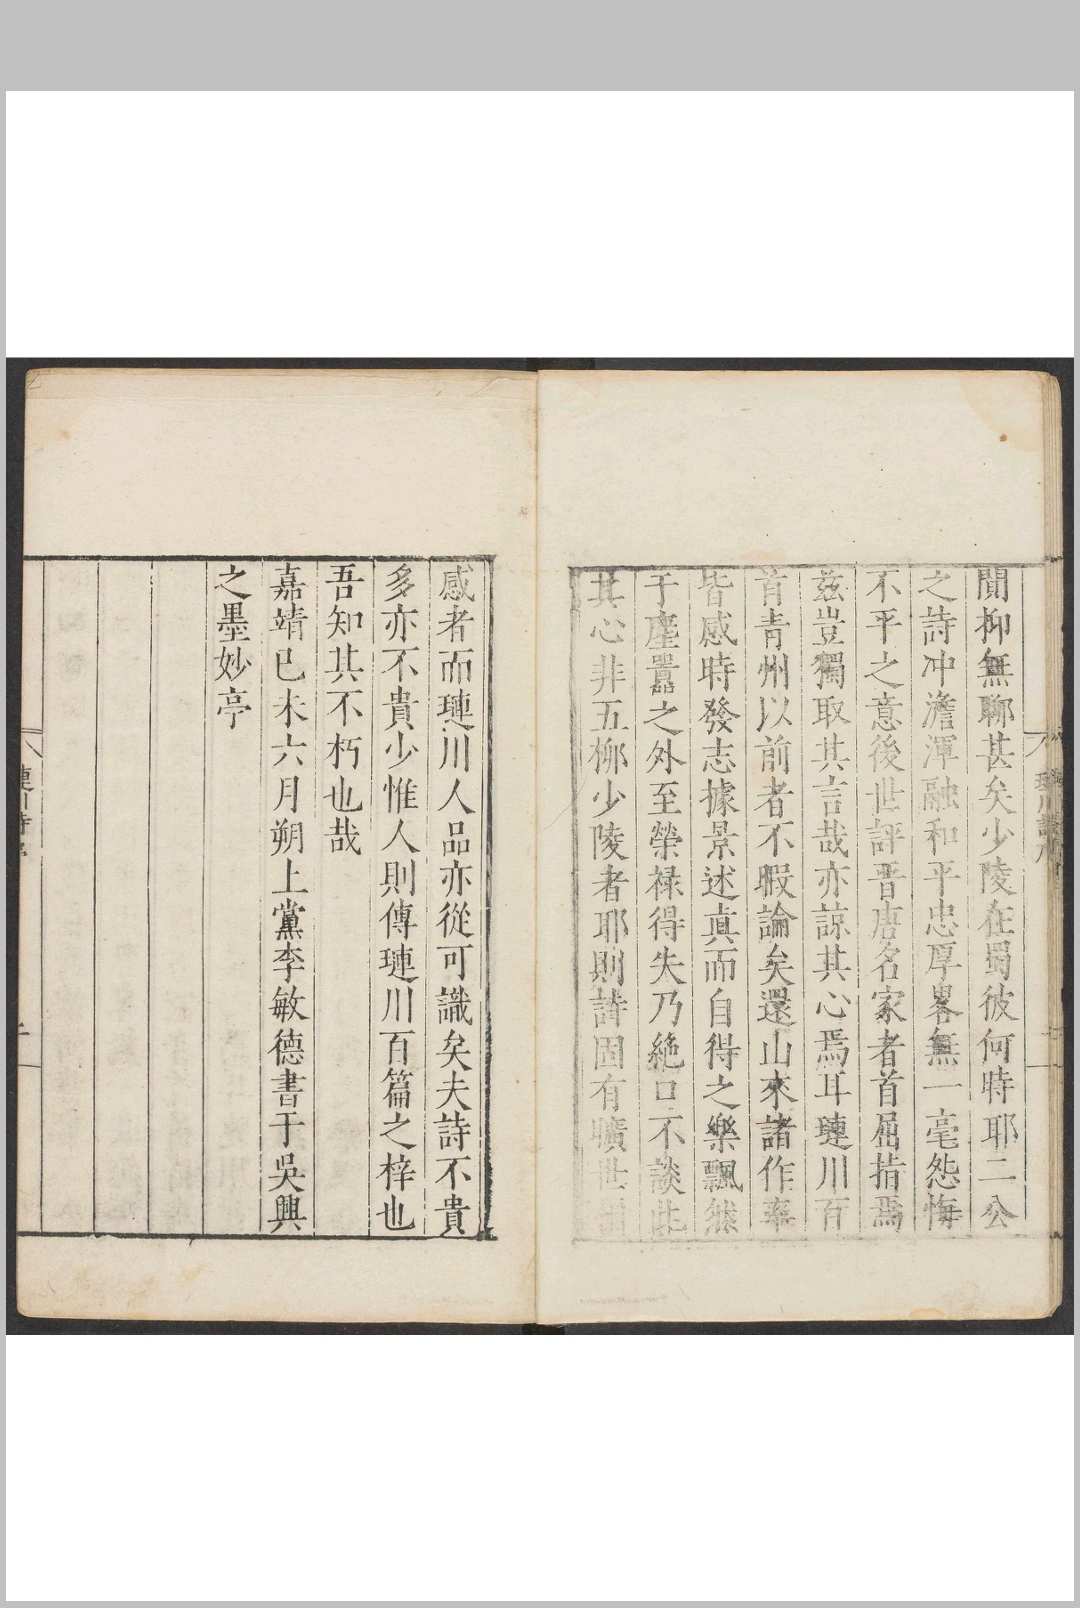 間抑無聊甚矣少陵在蜀彼何時耶二公
之詩冲澹渾融和平忠厚畧無一毫怨悔
不平之意後世評晋唐名家者首屈指焉
兹豈獨取其言哉亦諒其心焉耳璉川百
首青州以前者不暇論矣還山來諸作率
皆感時發志據景述真而自得之樂飄然
于塵囂之外至榮禄得失乃絶口不談此
其心非五柳少陵者耶則詩固有曠世相
感者而璉川人品亦從可識矣夫詩不貴
多亦不貴少惟人則傳璉川百篇之梓也
吾知其不朽也哉
嘉靖已未六月朔上黨李敏德書于吳興
之墨妙亭